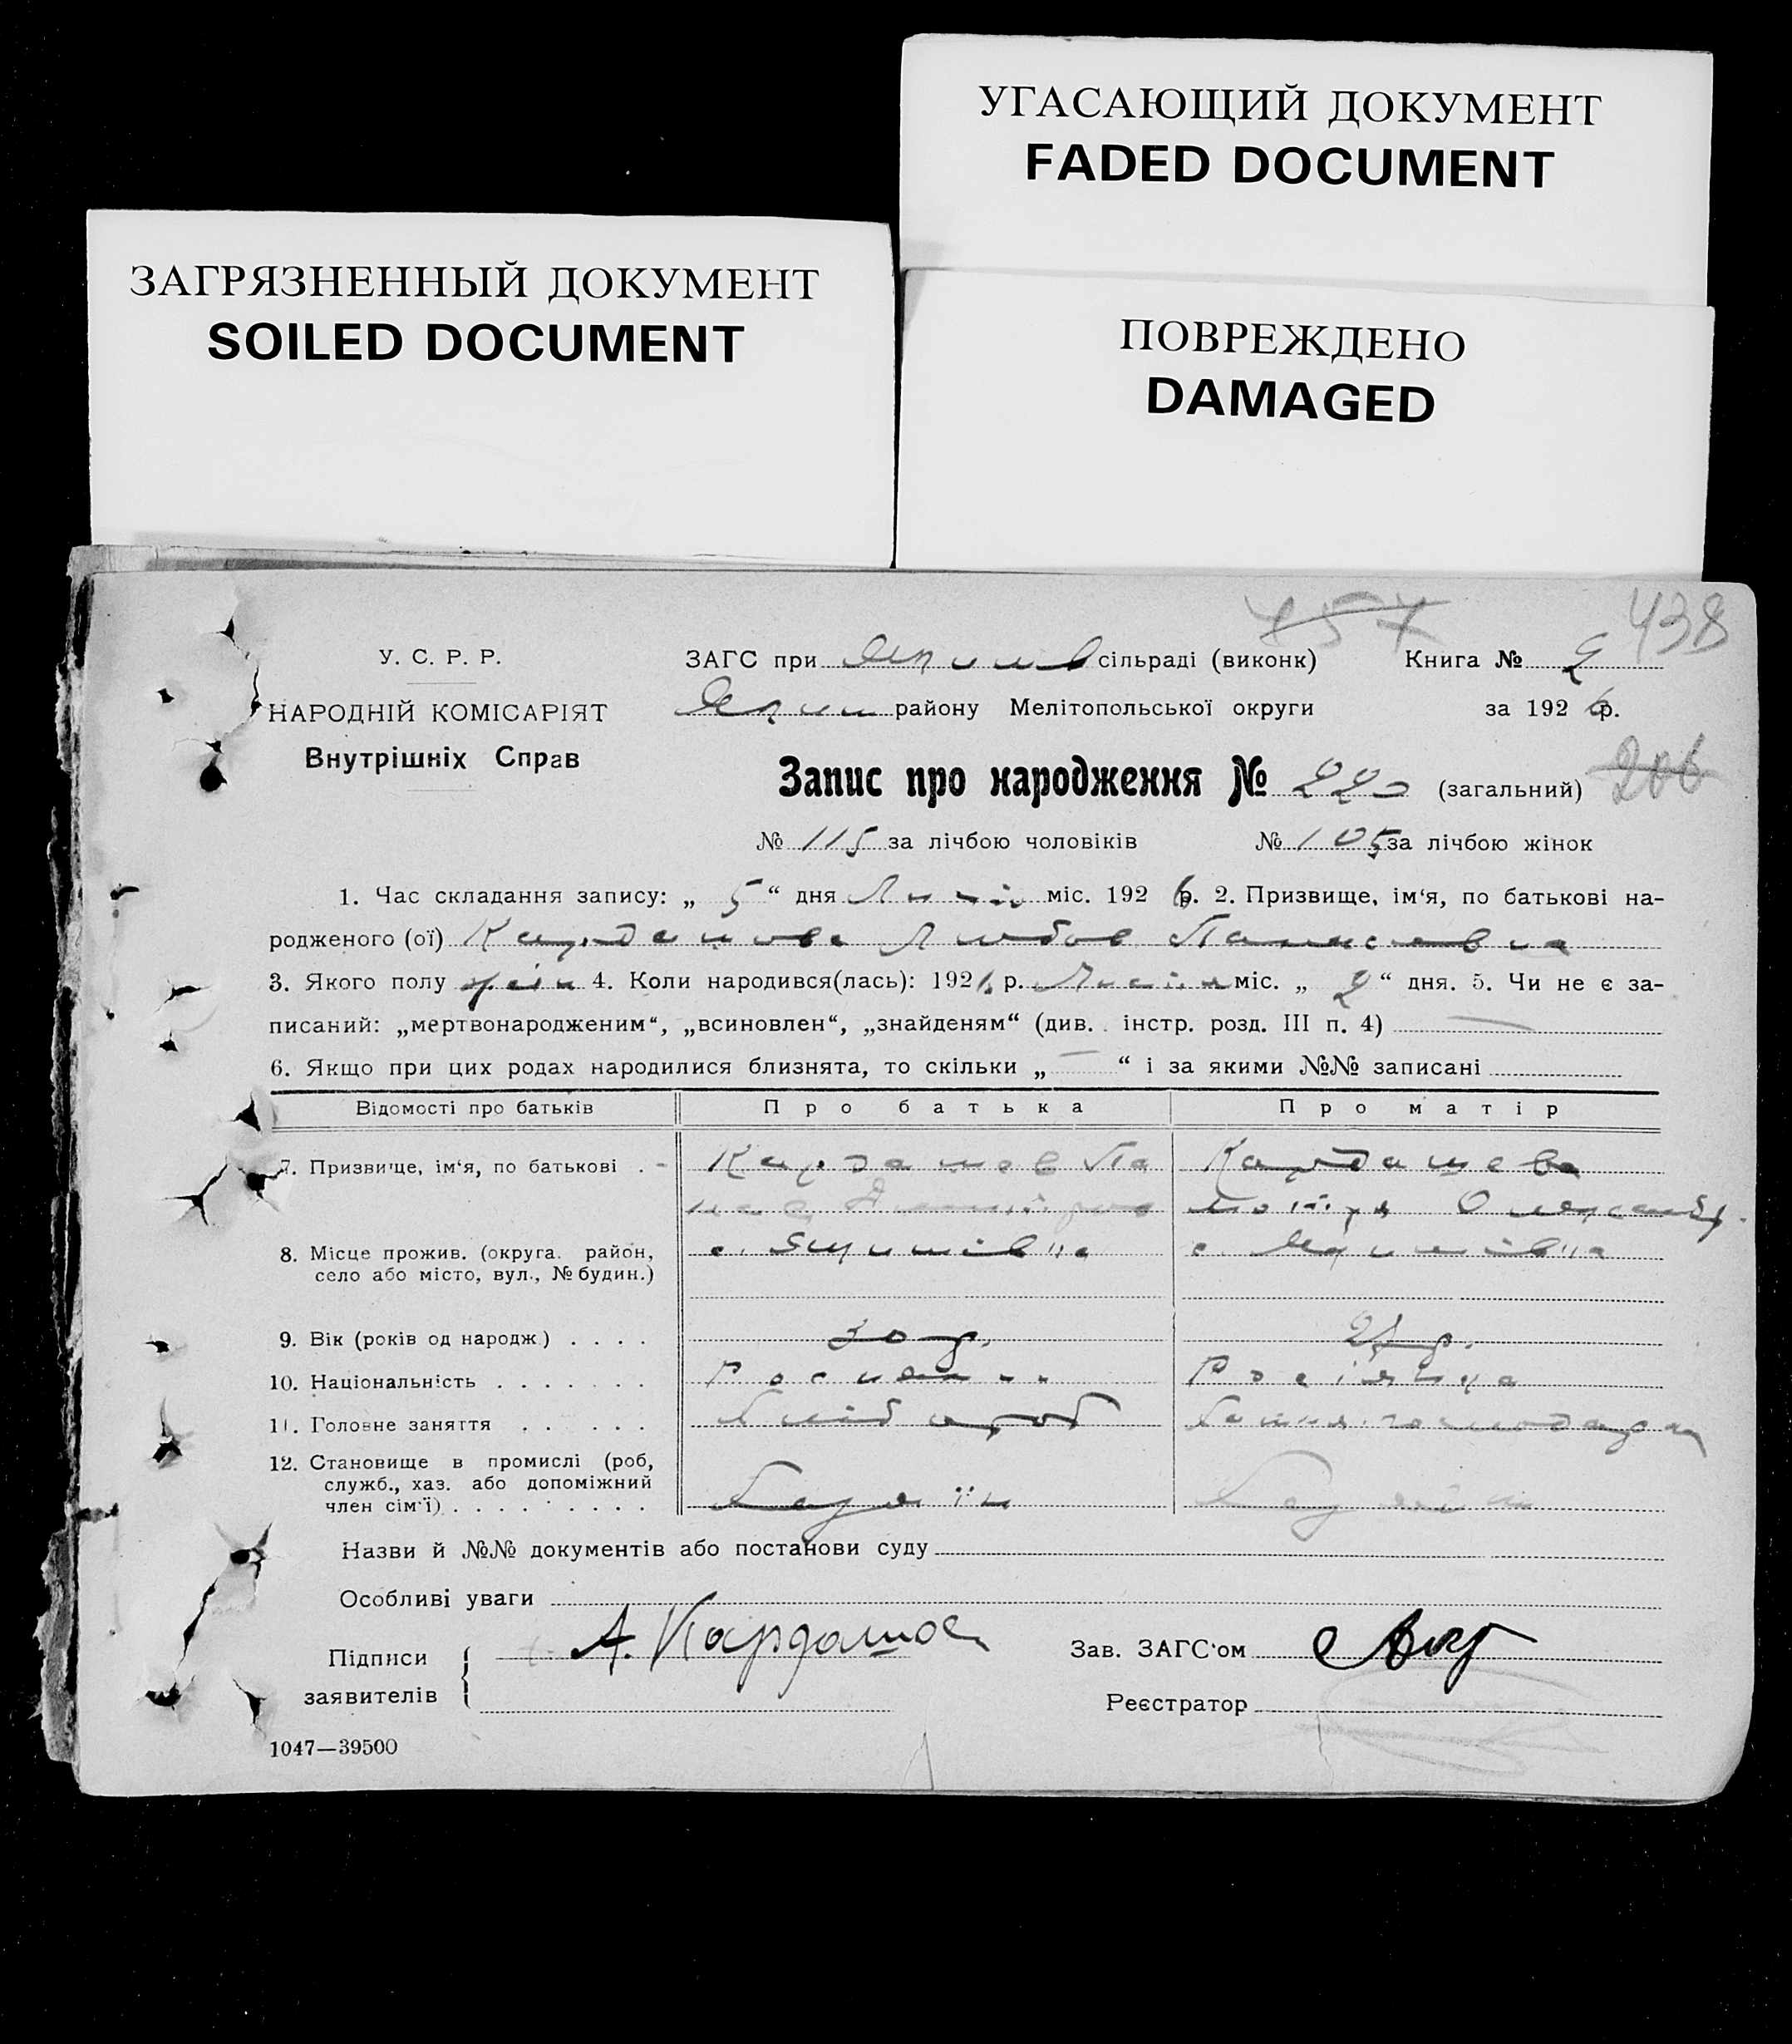 УГАСАЮЩИЙ ДОКУМЕНТ
FADED DOCUMENT
ЗАГРЯЗНЕННЫЙ ДОКУМЕНТ
SOILED DOCUMENT
ПОВРЕЖДЕНО
DAMAGED
757 438
У. С. Р. Р.
ЗАГС при Якимів сільраді (виконк) Книга № 2
НАРОДНІЙ КОМІСАРІЯТ
Внутрішніх Справ
Яким району Мелітопольської округи за 1926 р.
Запис про народження № 220 (загальний) 206
№ 115 за лічбою чоловіків № 105 за лічбою жінок
1. Час складання запису: „ 5 “ дня Липня міс. 1926 р. 2. Призвище, ім‘я, по батькові на-
родженого (ої) Кардашова Любов Панасовна
3. Якого полу жін 4. Коли народився(лась): 192 р. Липня міс. „ 2 “ дня. 5. Чи не є за-
писаний: „мертвонародженим“, „всиновлен“, „знайденям“ (див. інстр. розд. III п. 4) —
6. Якщо при цих родах народилися близнята, то скільки „ — “ і за якими №№ записані
Відомості про батьків Про батька Про матір
7. Призвище, ім‘я, по батькові . - Кардашов Па Кардашова
нас Мотря Олександр.
8. Місце прожив. (округа. район, с. Якимівка с. Якимівка
село або місто, вул., № будин.)
9. Вік (років од народж.) . . . . 30 р. р.
10. Національність . . . . . . . Росіянин Росіянка
11. Головне заняття . . . . . Хлібороб господарка
12. Становище в промислі (роб,
служб., хаз. або допоміжний
член сім‘ї) . . . . . . . . . Хазяїн
Назви й №№ документів або постанови суду
Особливі уваги
Підписи А. Кардашов Зав. ЗАГС‘ом
заявителів Реєстратор
1047—39500